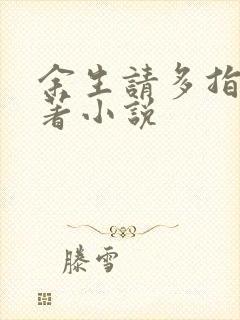 余生請多指
著小說
滕雪